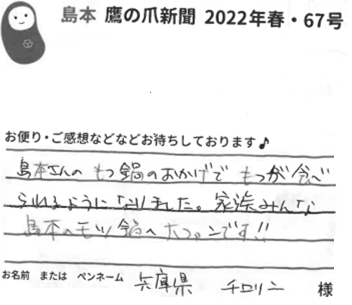 島本 鷹の爪新聞 2022年春・67号
お便り・ご感想などなどお待ちしております♪
島本さんの もつ鍋のおかげで もつが食べ
られるようになりました。家族みんな
島本のモツ鍋の大ファンです!!
お名前 または ペンネーム 兵庫県 チロリン 様